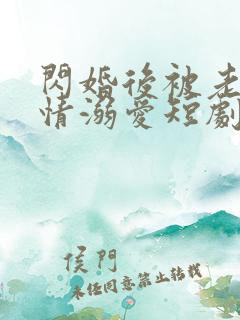 閃婚後被老
情溺愛短劇
侯門
未任同意禁止轉載